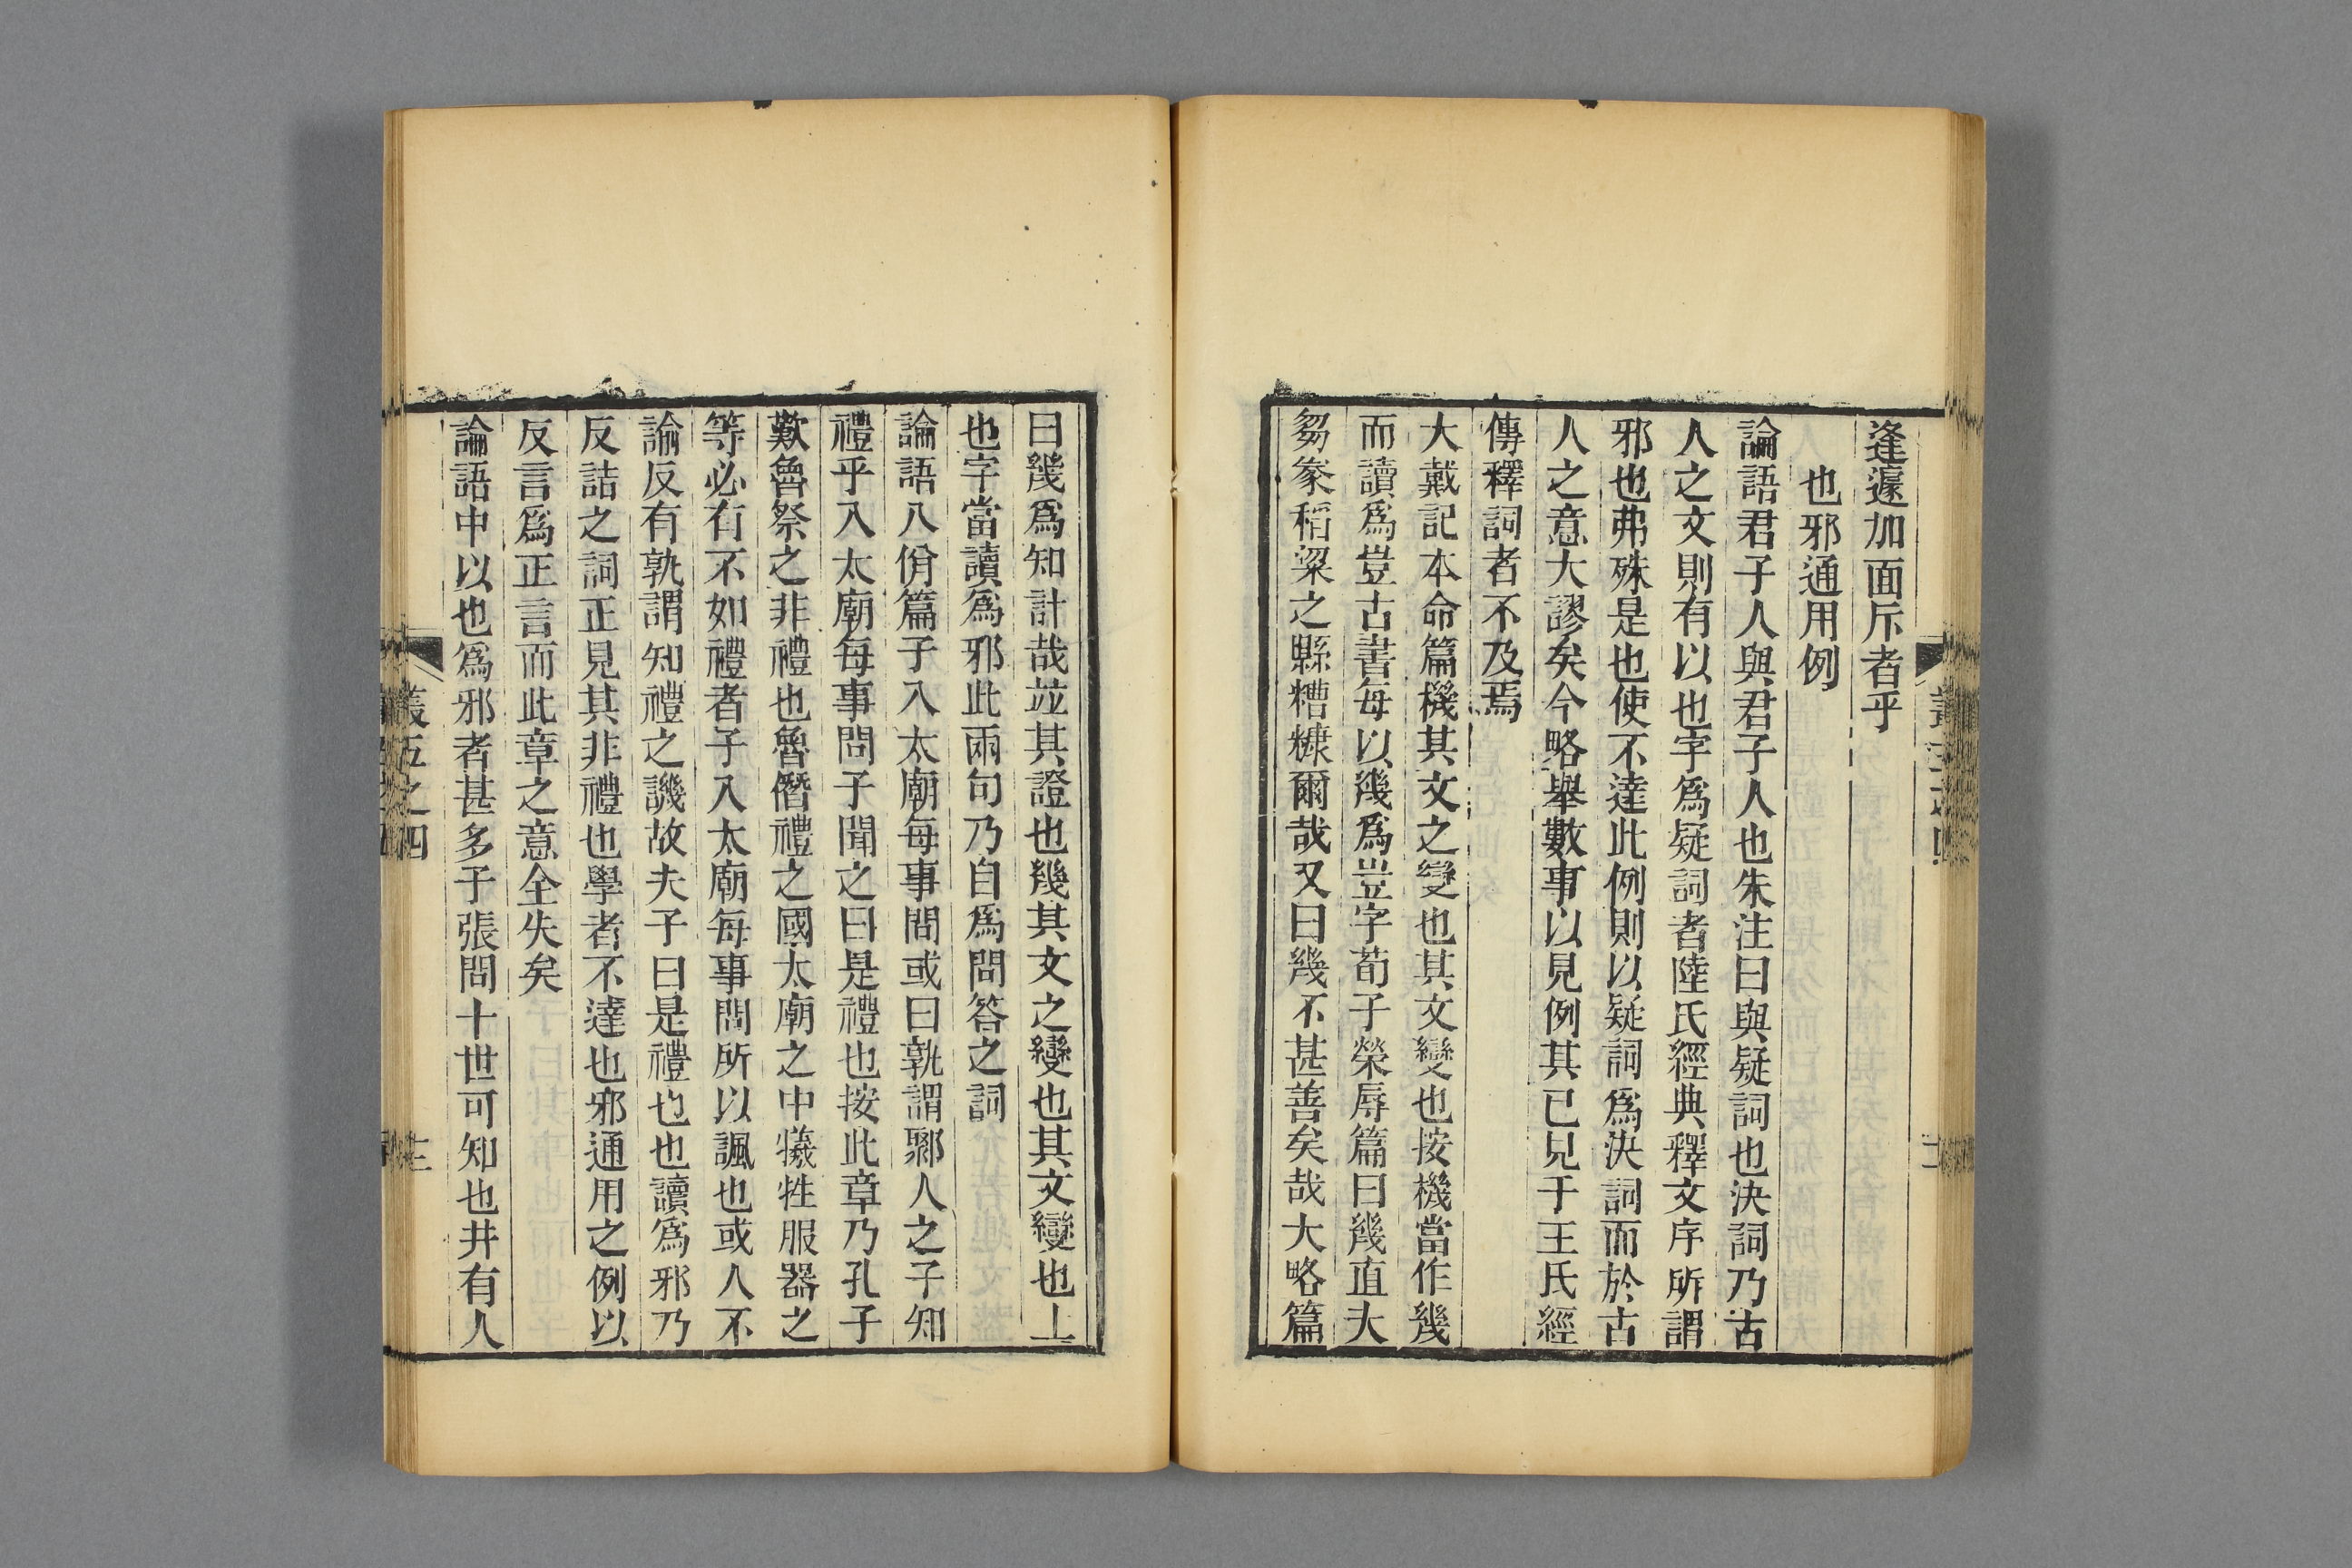 逢遽加面斥者乎
也邪通用例
論語君子人與君子人也朱注曰與疑詞也決詞乃古
人之文則有以也字爲疑詞者陸氏經典釋文序所謂
邪也弗殊是也使不達此例則以疑詞爲決詞而於古
人之意大謬矣今略舉數事以見例其已見于王氏經
傳釋詞者不及焉
大戴記本命篇機其文之變也其文變也按機當作幾
而讀爲豈古書每以幾爲豈字荀子榮辱篇曰幾直夫
芻豢稻粱之縣糟糠爾哉又曰幾不甚善矣哉大略篇
曰幾爲知計哉竝其證也幾其文之變也其文變也上
也字當讀爲邪此兩句乃自爲問答之詞
論語八佾篇子入太廟每事問或曰孰謂鄹人之子知
禮乎入太廟每事問子聞之曰是禮也按此章乃孔子
歎魯祭之非禮也魯僭禮之國太廟之中犧牲服器之
等必有不如禮者子入太廟每事問所以諷也或人不
諭反有孰謂知禮之譏故夫子曰是禮也也讀爲邪乃
反詰之詞正見其非禮也學者不達也邪通用之例以
反言爲正言而此章之意全失矣
論語中以也爲邪者甚多子張問十世可知也井有人
叢五之四
十三